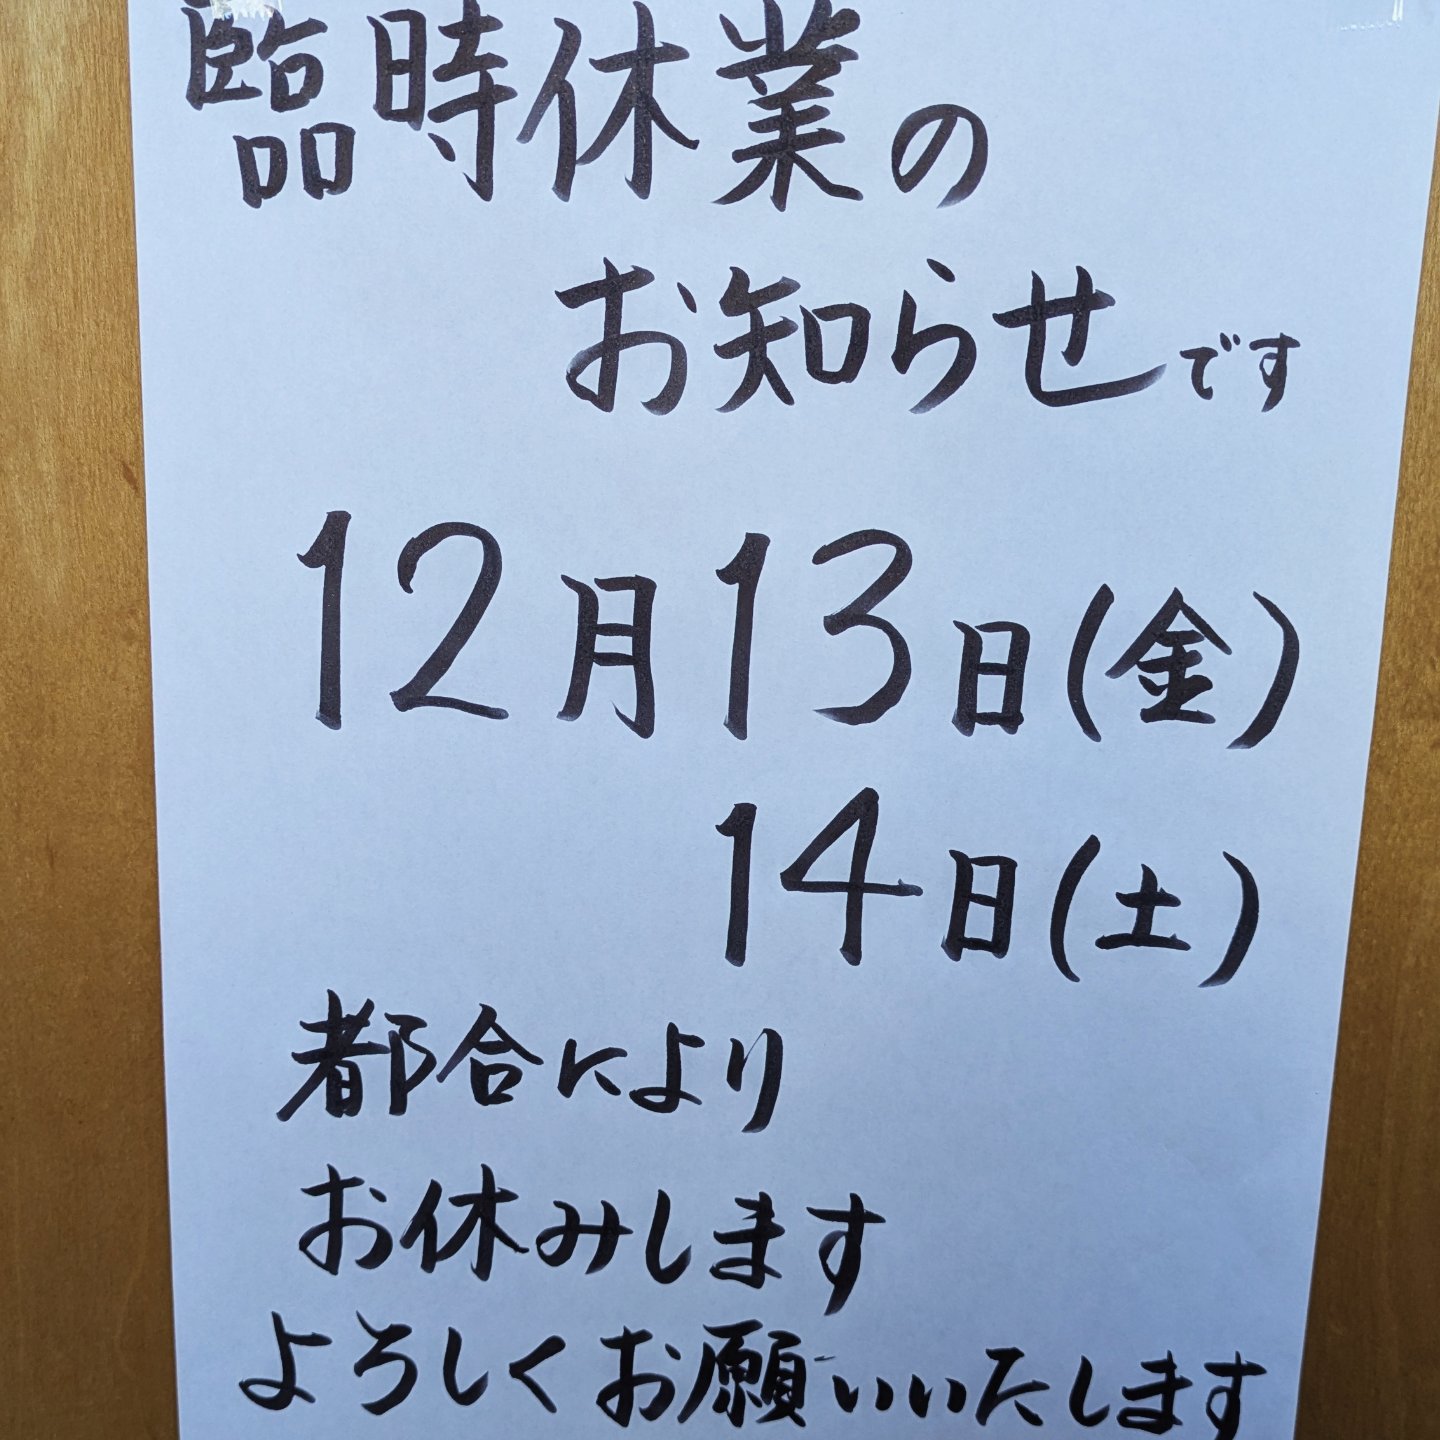 臨時休業の
お知らせです
12月13日(金)
14日(土)
都合により
お休みします
よろしくお願いいたします